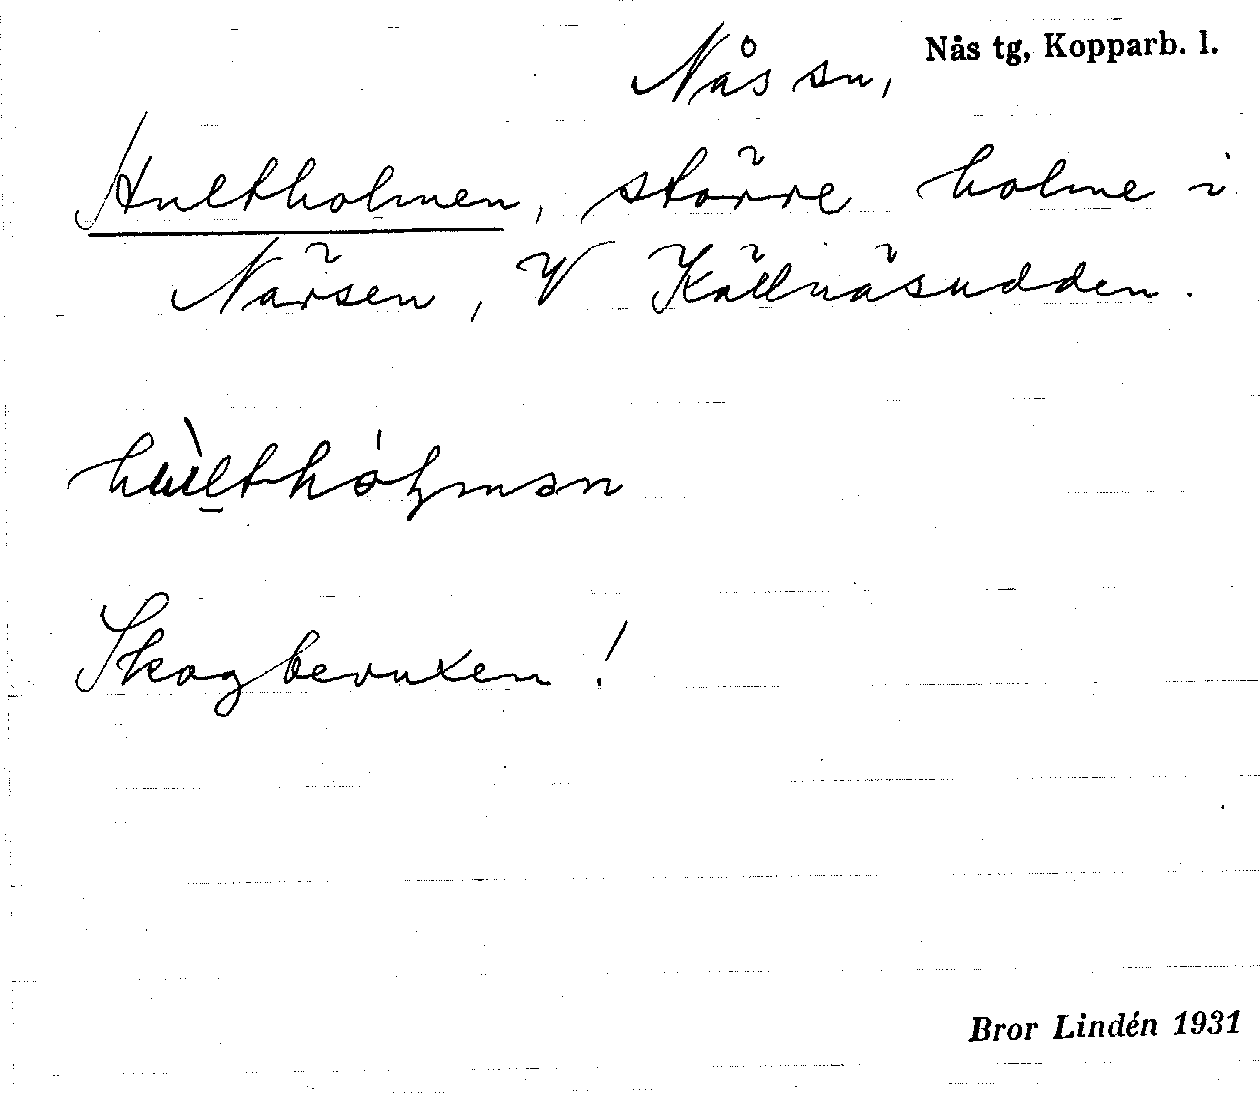 Nås sn, Nås tg, Kopparb. l.
Hultholmen, större holme i
Närsen, V Källnäsudden.
Skogbevuxen!
Bror Lindén 1931